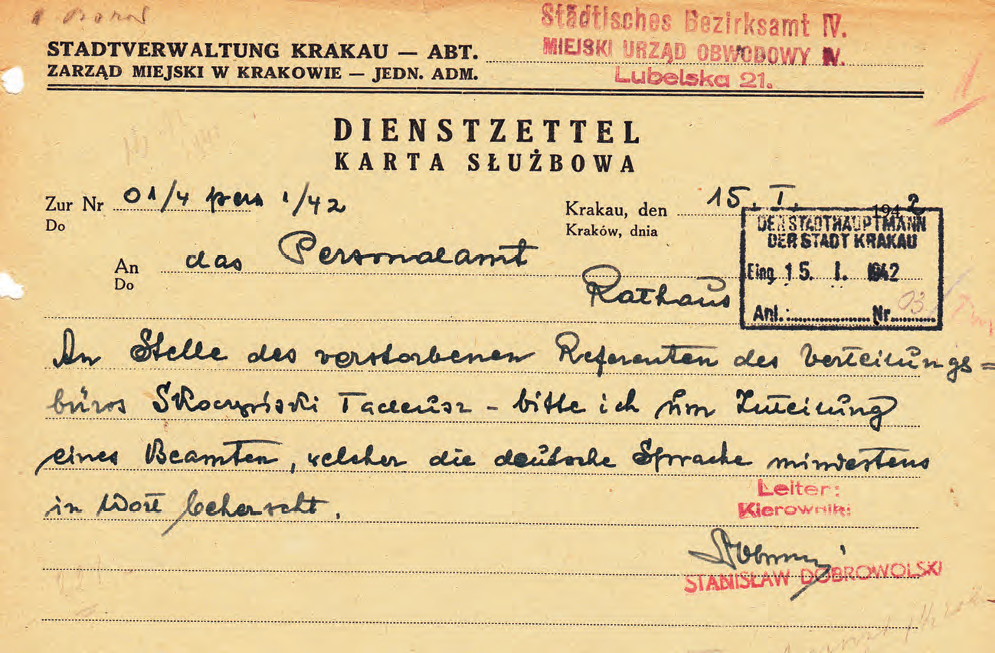 Städtisches Bezirksamt IV.
MIEJSKI URZĄD OBWODOWY IV.
Lubelska 21.
STADTVERWALTUNG KRAKAU — ABT.
ZARZĄD MIEJSKI W KRAKOWIE — JEDN. ADM.
DIENSTZETTEL
KARTA SŁUŻBOWA
Zur Nr 01/4 pers 1/42
Do
Krakau, den 15. I. 1942
Kraków, dnia
DER STADTHAUPTMANN
DER STADT KRAKAU
Eing. 15. I. 1942
Anl.: Nr.
An das Personalamt
Do
Rathaus
An Stelle des verstorbenen Referenten des Verteilungs=
büros Skoczyński Tadeusz - bitte ich um Zuteilung
eines Beamten, welcher die deutsche Sprache mindestens
in Wort beherscht.
Leiter:
Kierownik:
STANISŁAW DOBROWOLSKI